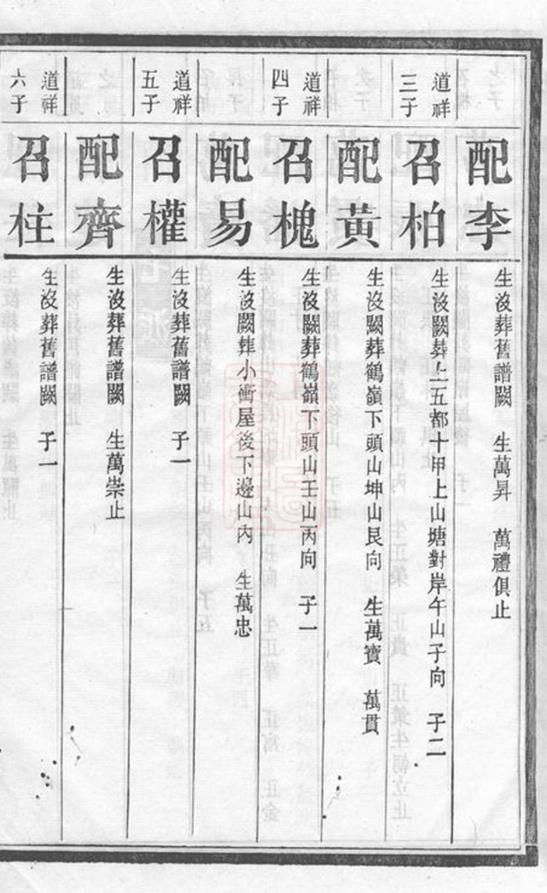 配李
生沒葬舊譜闕 生萬昇 萬禮俱止
道祥三子
召柏
生沒闕葬上五都十甲上山塘對岸午山子向 子二
配黃
生沒闕葬鶴嶺下頭山坤山艮向 生萬寶 萬貫
道祥四子
召槐
生沒闕葬鶴嶺下頭山壬山丙向 子一
配易
生沒闕葬小衝屋後下邊山內 生萬忠
道祥五子
召權
生沒葬舊譜闕 子一
配齊
生沒葬舊譜闕 生萬崇止
道祥六子
召柱
生沒葬舊譜闕 子一